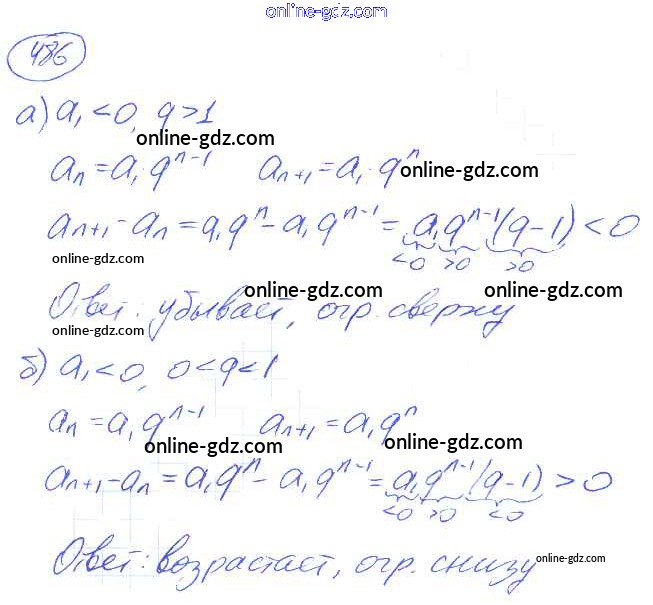 online-gdz.com
486
а) a₁ < 0, q > 1
online-gdz.com
aₙ = a₁·qⁿ⁻¹ aₙ₊₁ = a₁·qⁿ online-gdz.com
aₙ₊₁ - aₙ = a₁qⁿ - a₁qⁿ⁻¹ = a₁qⁿ⁻¹(q-1) < 0
online-gdz.com <0 >0 >0
online-gdz.com online-gdz.com
Ответ: убывает, огр. сверху
online-gdz.com
б) a₁ < 0, 0 < q < 1
aₙ = a₁qⁿ⁻¹ aₙ₊₁ = a₁qⁿ
online-gdz.com online-gdz.com
aₙ₊₁ - aₙ = a₁qⁿ - a₁qⁿ⁻¹ = a₁qⁿ⁻¹(q-1) > 0
<0 >0 <0
Ответ: возрастает, огр. снизу online-gdz.com